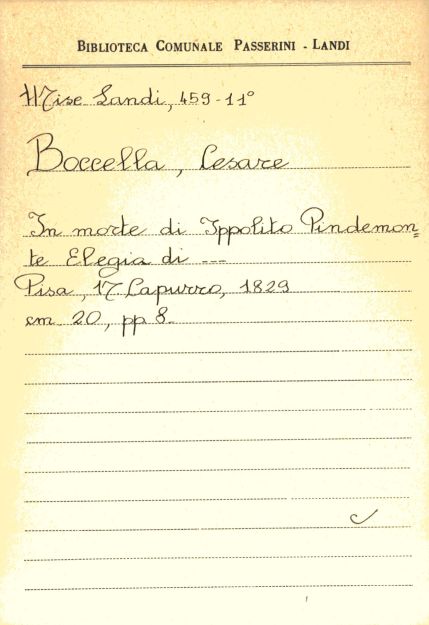 BIBLIOTECA COMUNALE PASSERINI - LANDI
Misc Landi, 459-11°
Boccella, Cesare
In morte di Ippolito Pindemon=
te Elegia di ---
Pisa, N Capurro, 1829
cm 20, pp 8.